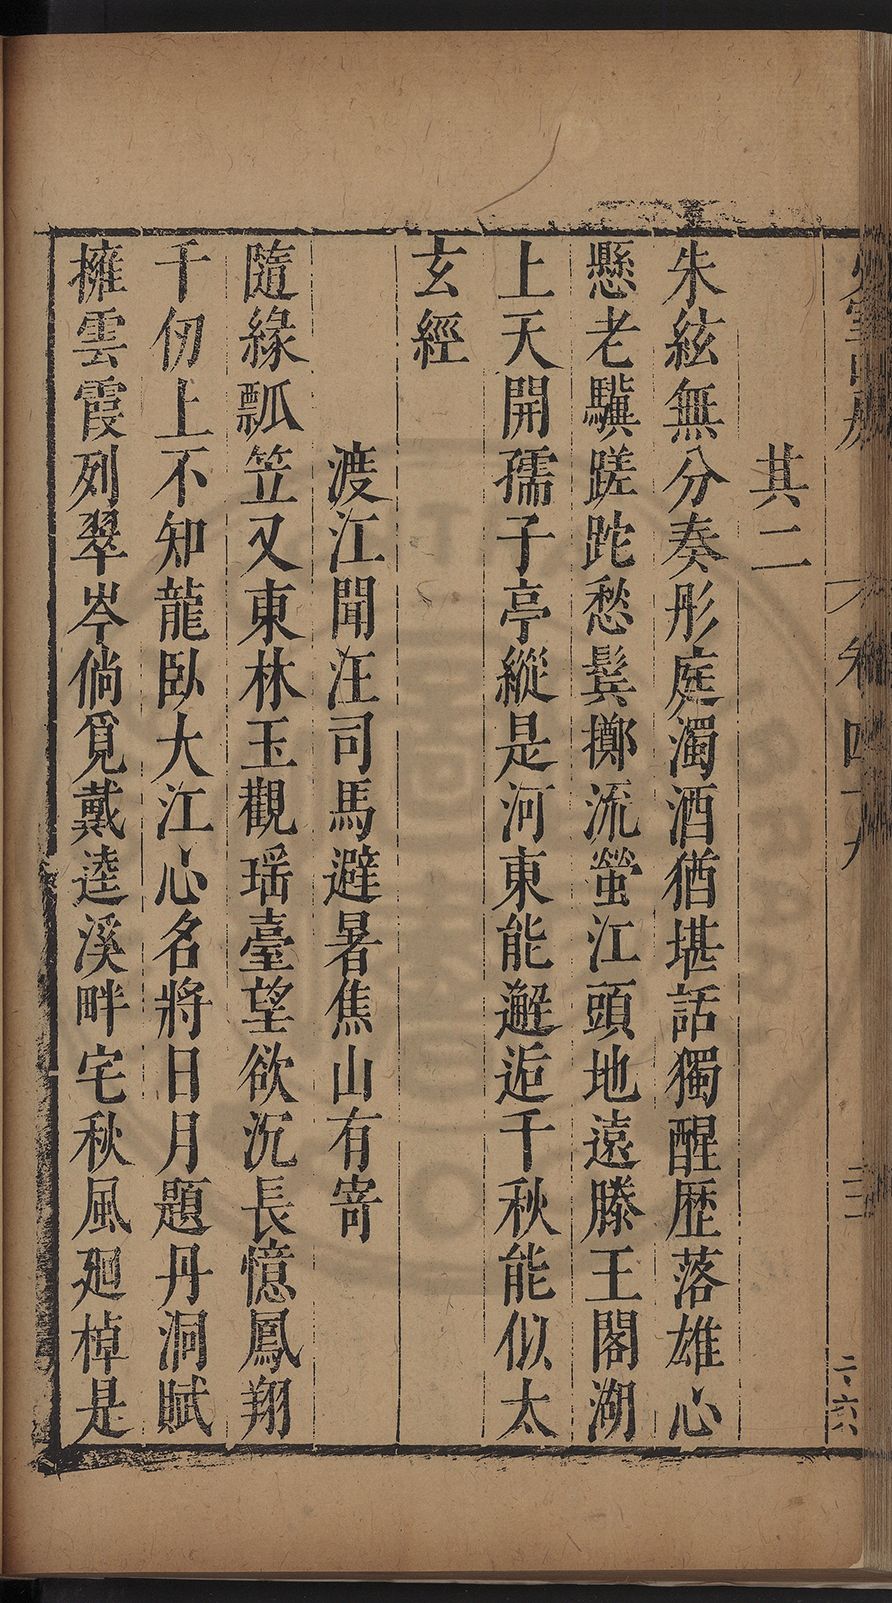 其二
朱絃無分奏彤庭濁酒猶堪話獨醒歷落雄心
懸老驥蹉跎愁鬂擲流螢江頭地遠滕王閣湖
上天開孺子亭縱是河東能邂逅千秋能似太
玄經
渡江聞汪司馬避暑焦山有寄
隨緣瓢笠又東林玉觀瑶臺望欲沉長憶鳳翔
千仞上不知龍臥大江心名將日月題丹洞賦
擁雲霞列翠岑倘覓戴逵溪畔宅秋風廻棹是